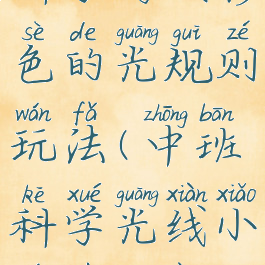 sè de guāng guī zé
色的光规则
wán fǎ zhōng bān
玩法(中班
kē xué guāng xiàn xiǎo
科学光线小